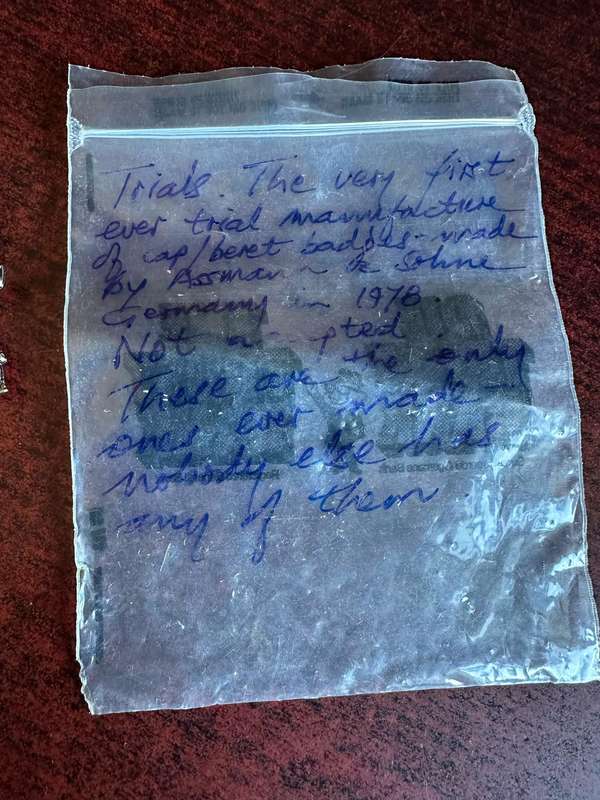 Trials. The very first
ever trial manufacture
of cap/beret badges - made
by Assmann & Sohne
Germany in 1978
Not accepted.
These are the only
ones ever made -
nobody else has
any of them.